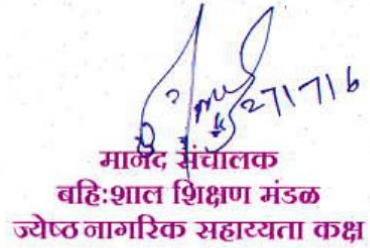 271716
मानद संचालक
बहि:शाल शिक्षण मंडळ
ज्येष्ठ नागरिक सहाय्यता कक्ष